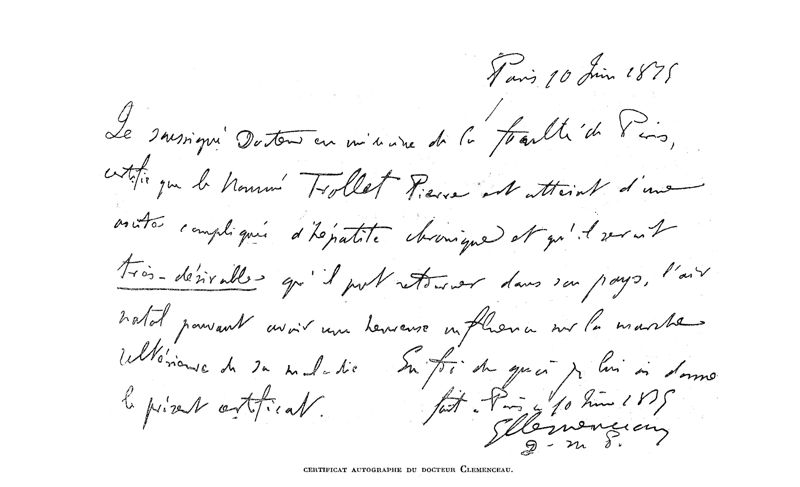 Paris 10 Juin 1875
Le soussigné Docteur en médecine de la faculté de Paris,
certifie que le nommé Trollet Pierre est atteint d'une
ascite compliquée d'hépatite chronique et qu'il serait
très-désirable qu'il put retourner dans son pays, l'air
natal pouvant avoir une heureuse influence sur la marche
ultérieure de sa maladie En foi de quoi je lui ai donné
le présent certificat. fait à Paris le 10 Juin 1875
GClemenceau
D. m. P.
CERTIFICAT AUTOGRAPHE DU DOCTEUR CLEMENCEAU.